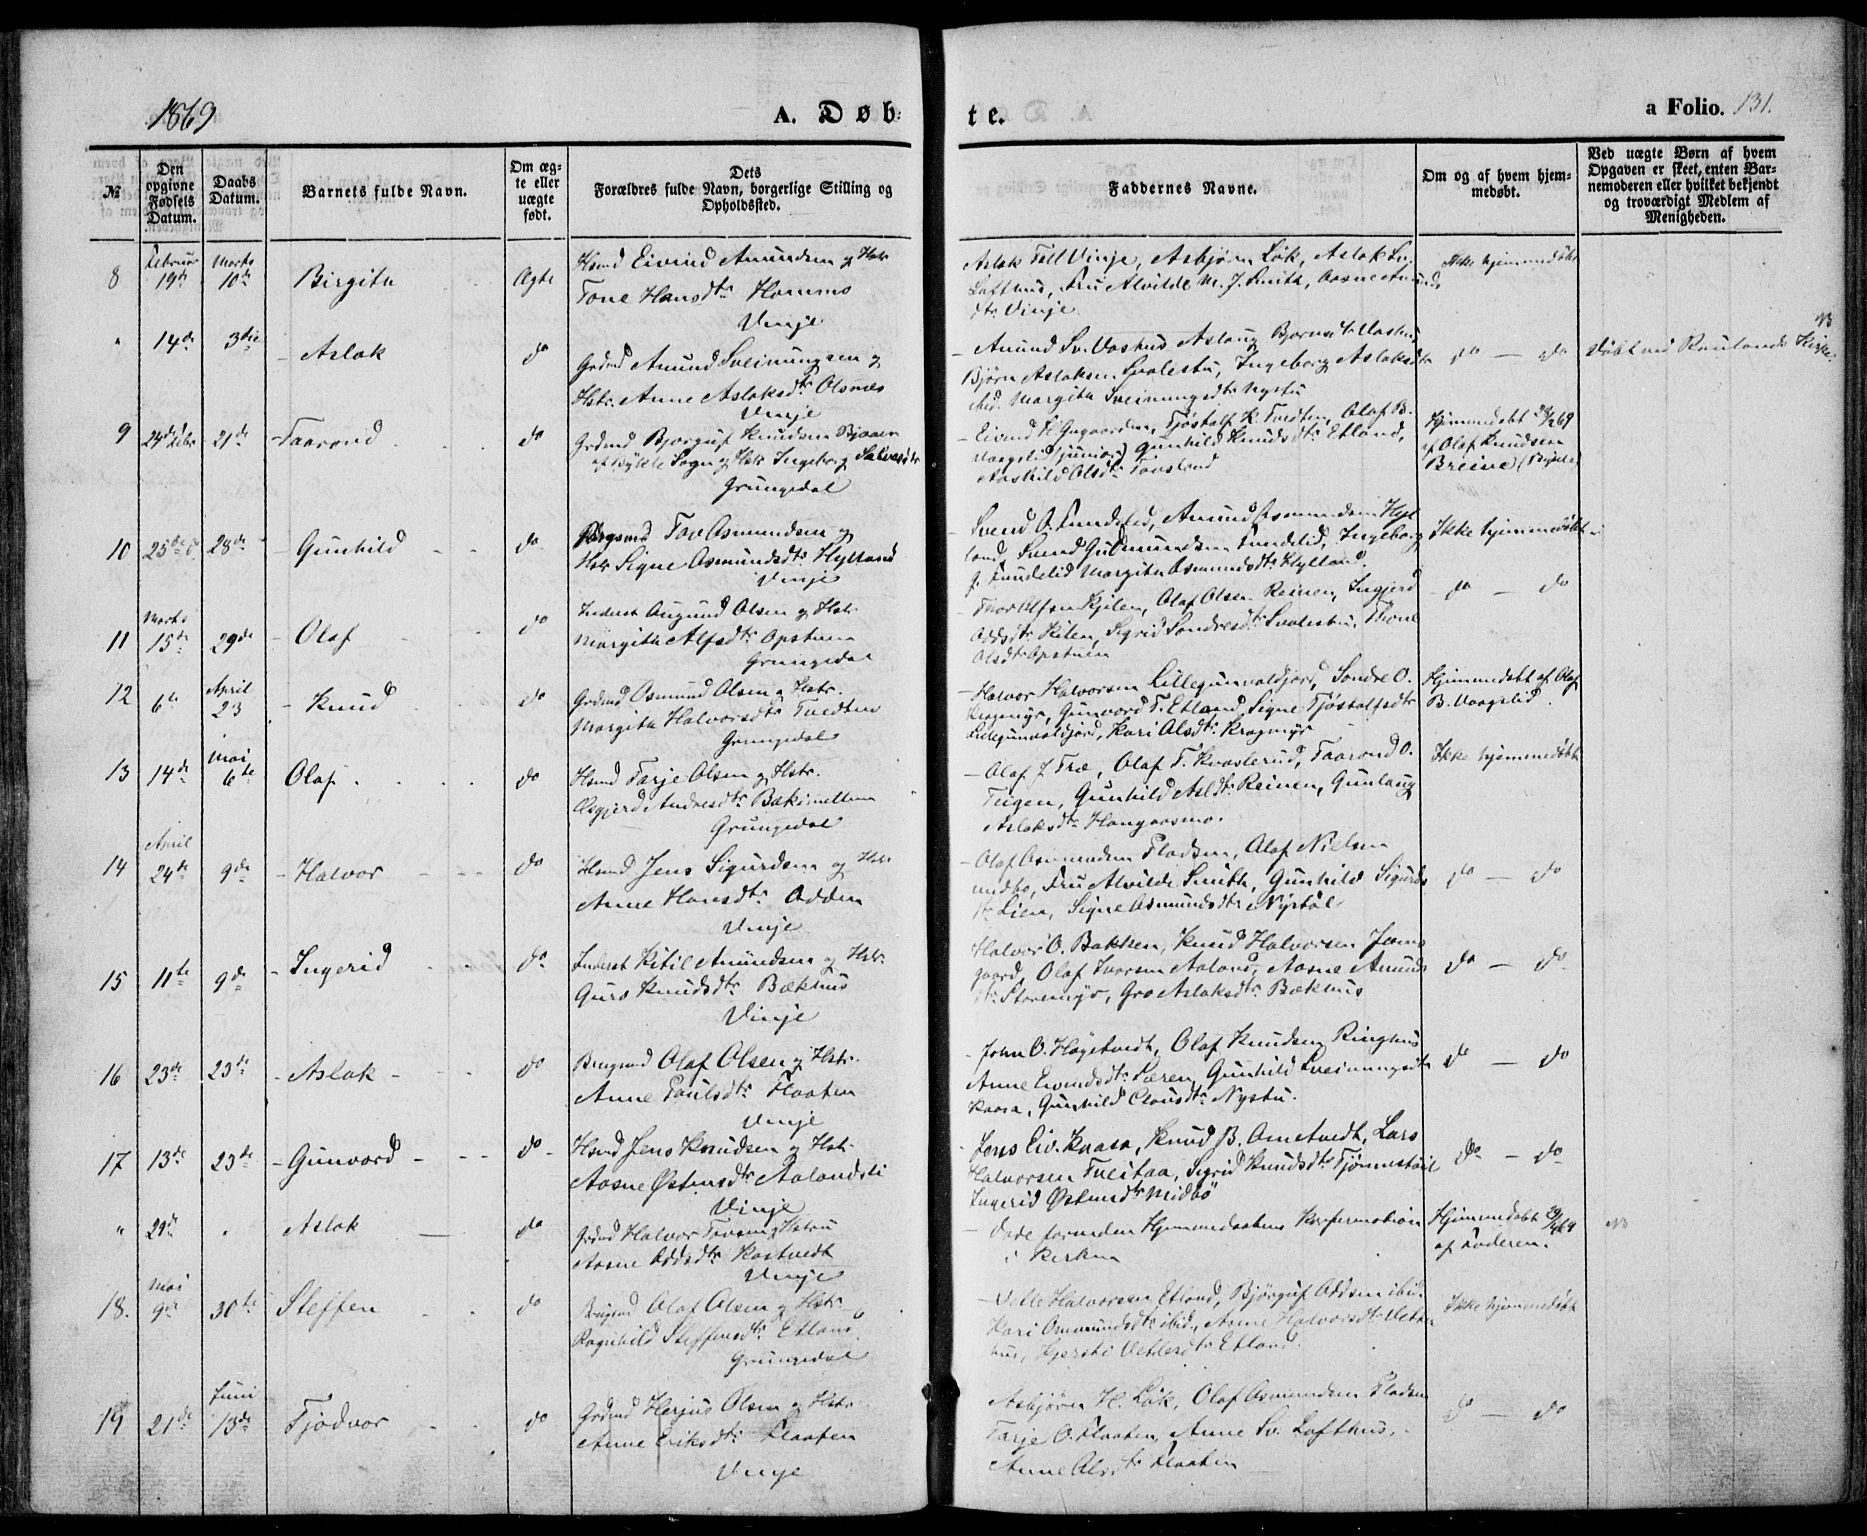 1869
A. Døb-
te.
a Folio. 131.
№
Den opgivne Fødsels Datum.
Daabs Datum.
Barnets fulde Navn.
Om ægte eller uægte født.
Dets
Forældres fulde Navn, borgerlige Stilling og
Opholdssted.
Faddernes Navne.
Om og af hvem hjemmedøbt.
Ved uægte Børn af hvem
Opgaven er skeet, enten Bar-
nemoderen eller hvilket bekjendt
og troværdigt Medlem af
Menigheden.
8 Februar 19de Marts 10de Birgita Ægte
Eivind Amundsen og Hstr
Tone Hansdtr Hommo
Vinje
Aslok Vinje, Asbjørn Løk, Aslak
Lofthus, Fru Alvilde M. J. Smith, Aasne
dtr Vinje
Ikke hjemmedøbt
" 14de 3die Aslak do
Grdmd Amund Sveinungsen og
Hstr. Anne Aslaksdtr Olsnæs
Vinje
Amund Sv. Vaahus Aslaug Bjørnsdtr
Bjørn Aslaksen Svalestu, Ingeborg Aslaksdtr
ibid. Margita Sveinungsdtr Nystu
do — do
Døbt ved Raulands Kirke
NB
9 24de Febr 21de Taarond do
Grdmd Bjorguf Knudsen Bjaaen
af Bykle Sogn og Hstr Ingeborg
Grungedal
Eivind Gugaarden, Tjøstolf K. Tvedten, Olaf B.
Vaagslid (junior) Gunhild Knudsdtr Etland,
Aashild Olsdtr
Hjemmedøbt 28/2 69
af Olaf Knudsen
Breive (Bykle)
10 25de 28de Gunhild do
Tov Osmundsen og
Hstr Signe Osmundsdtr Hylland
Vinje
Svend O. Amund Osmundsen Hyl
land, Svend Gudmundsen Ingeborg
G. Margita Osmundsdtr Hylland.
Ikke hjemmedøbt
11 Marts 15de 29de Olaf do
Inderst Augund Olsen og Hstr.
Margita Alfsdtr Opstuen
Grungedal
Thor Alfsen Kilen, Olaf Olsen Reinen, Ingjerd
Oddsdtr Kilen, Sigrid Sondresdtr Svalestu, Thone
Olsdtr Opstuen
do — do
12 6te April 23 Knud do
Grdmd Osmund Olsen og Hstr.
Margita Halvorsdtr Tvedten
Grungedal
Halvor Halvorsen Lillegunvaldjord, Sondre O.
Kragmyr, Gunvord T. Etland, Signe Tjøstolfsdtr
Lillegunvaldjord, Kari Olsdtr Kragmyr
Hjemmedøbt af Olaf
B. Vaagslid.
13 14de Mai 6te Olaf do
Hsmd Tarje Olsen og Hstr.
Asgjerd Andresdtr Bækimellem
Grungedal
Olaf J. Træ, Olaf T. Kvasterud, Taarond O.
Teigen, Gunhild Olsdtr Reinen, Gunlaug
Aslaksdtr Haugaasmo.
Ikke hjemmedøbt
14 April 24de 9de Halvor do
Hsmd Jens Sigurdsen og Hstr
Anne Hansdtr Odden
Vinje
Olaf Osmundsen Flodsen, Olaf Nielsen
midbø, Fru Alvilde Smith, Gunhild Sigurds
dtr Lien, Signe Osmundsdtr Nystøl
do — do
15 11te 9de Ingerid do
Inderst Kitil Amundsen og Hstr.
Guro Knudsdtr Bækhus
Vinje
Halvor O. Bakken, Knud Halvorsen
gaard, Olaf Aaland, Aasne Amunds
dtr Storemyr, Gro Aslaksdtr Bækhus
do — do
16 23de 23de Aslak do
Brugsmd Olaf Olsen og Hstr.
Anne Paulsdtr Flaaten
Vinje
John O. Høgetvedt, Olaf Knudsen Ringhus
Anne Eivindsdtr Gunhild Sveinungsdtr
Kaasa, Gunhild Clausdtr Nystu.
do — do
17 13de 23de Gunvord do
Hsmd Jens Knudsen og Hstr.
Aasne Østensdtr Aalandsli
Vinje
Jens Eiv. Kaasa, Knud B. Ometvedt, Lars
Halvorsen Tveitaa, Sigrid Knudsdtr Tjønnestøil
Ingerid Østensdtr Midbø
do — do
" 29de " Aslak do
Grdmd Halvor Tovsen og Hstru
Aasne Oddsdtr Kostvedt
Vinje
Døde forinden Hjemmedaabens Konfirmation
i Kirken
Hjemmedøbt 29/4 69
af Faderen.
NB
18. Mai 9de 30te Steffen do
Brugsmd Olaf Olsen og Hstr.
Ragnhild Steffensdtr Etland
Grungedal
Vetle Halvorsen Etland, Bjørguf Oddsen ibid.
Kari Osmundsdtr ibid., Aasne Halvorsdtr
hus, Kjersti Vetlesdtr Etland.
Ikke hjemmedøbt
19 21de Juni 13de Tjodvor do
Grdmd Herjus Olsen og Hstr.
Anne Eriksdtr Flaaten
Vinje
Asbjørn H. Løk, Olaf Osmundsen Flodsen
Tarje O. Flaaten, Anne Sv. Lofthus,
Anne Olsdtr Flaaten
do — do